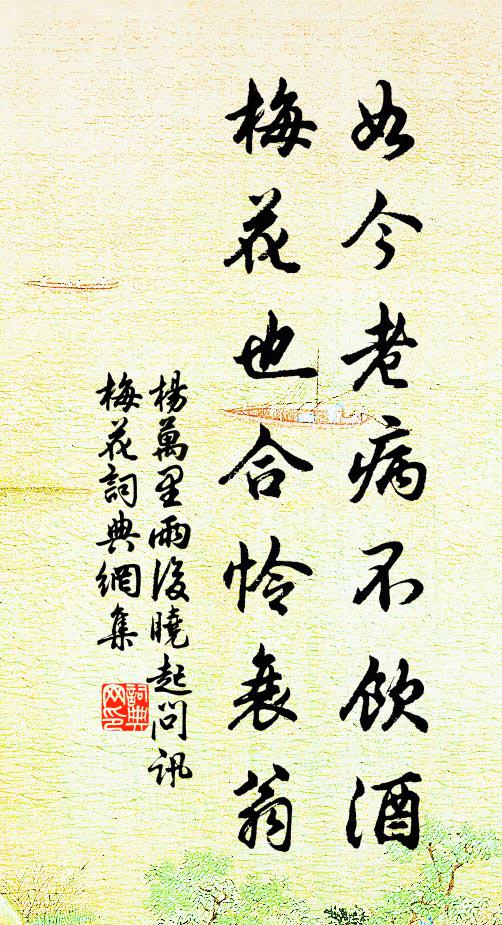 如今老病不飲酒
梅花也合怜衰翁
楊萬里雨後曉起問訊
梅花詞典網集
詞典
网印